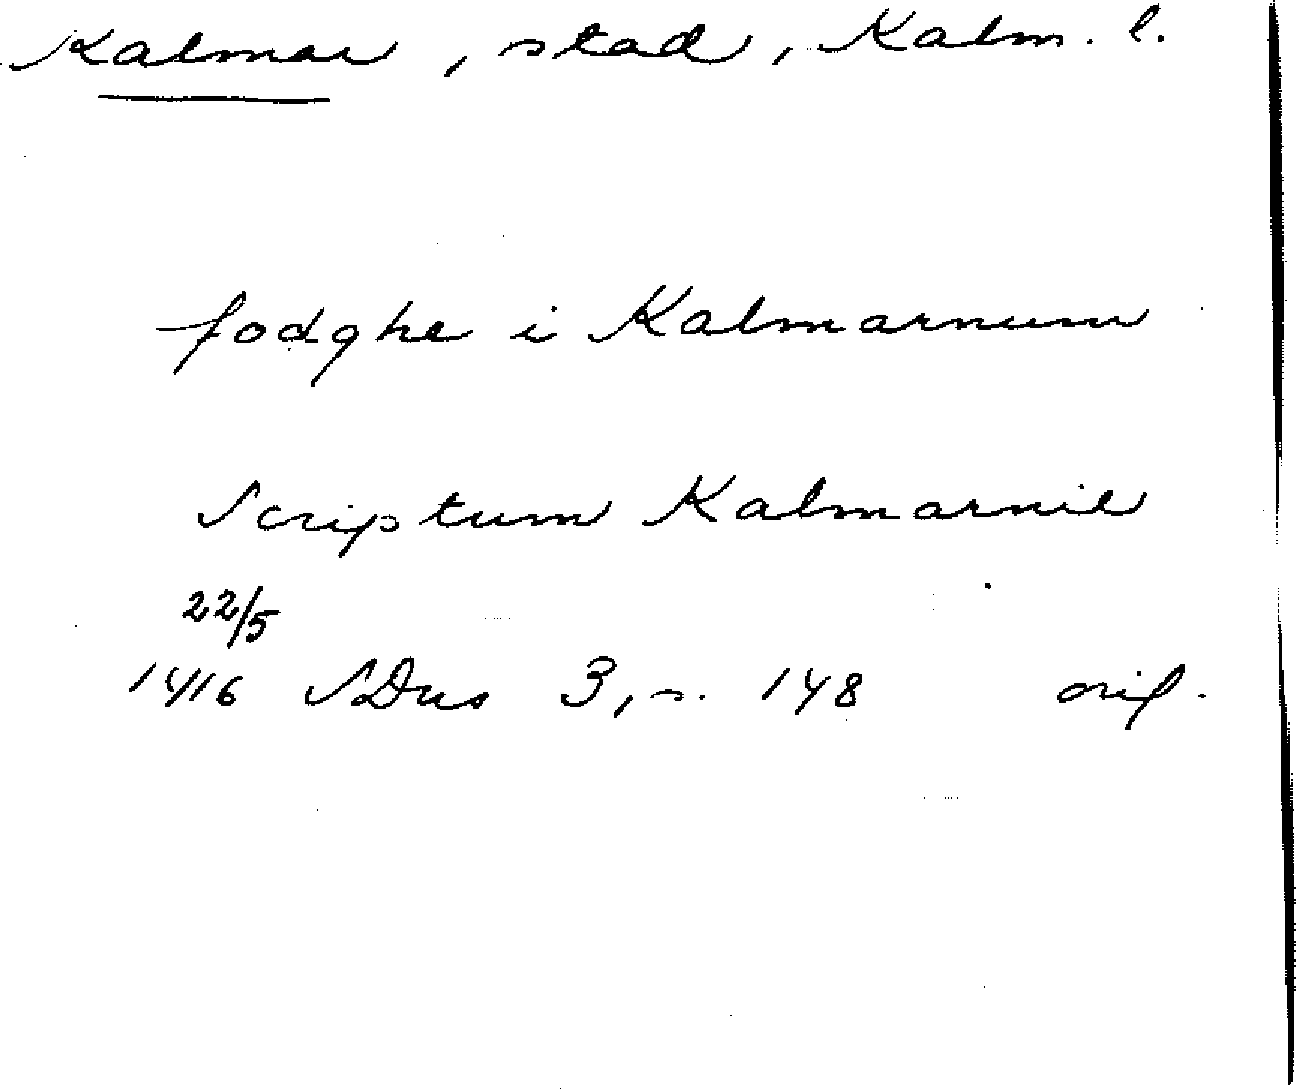 Kalmar, stad, Kalm. l.
fodghe i Kalmarnum
Scriptum Kalmarnie
22/5
1416 SDns 3, s. 148 orig.